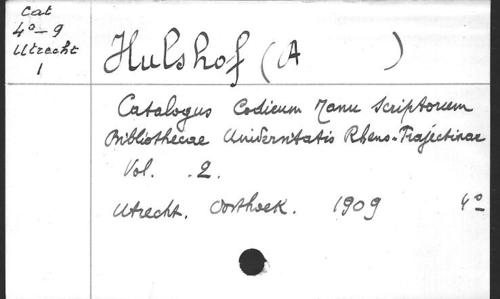 Cat
4° - 9
Utrecht
1
Hulshof (A )
Catalogus Codicum Manu Scriptorum
Bibliothecae Universitatis Rheno-Trajectinae
Vol. 2.
Utrecht. Oosthoek. 1909 4°